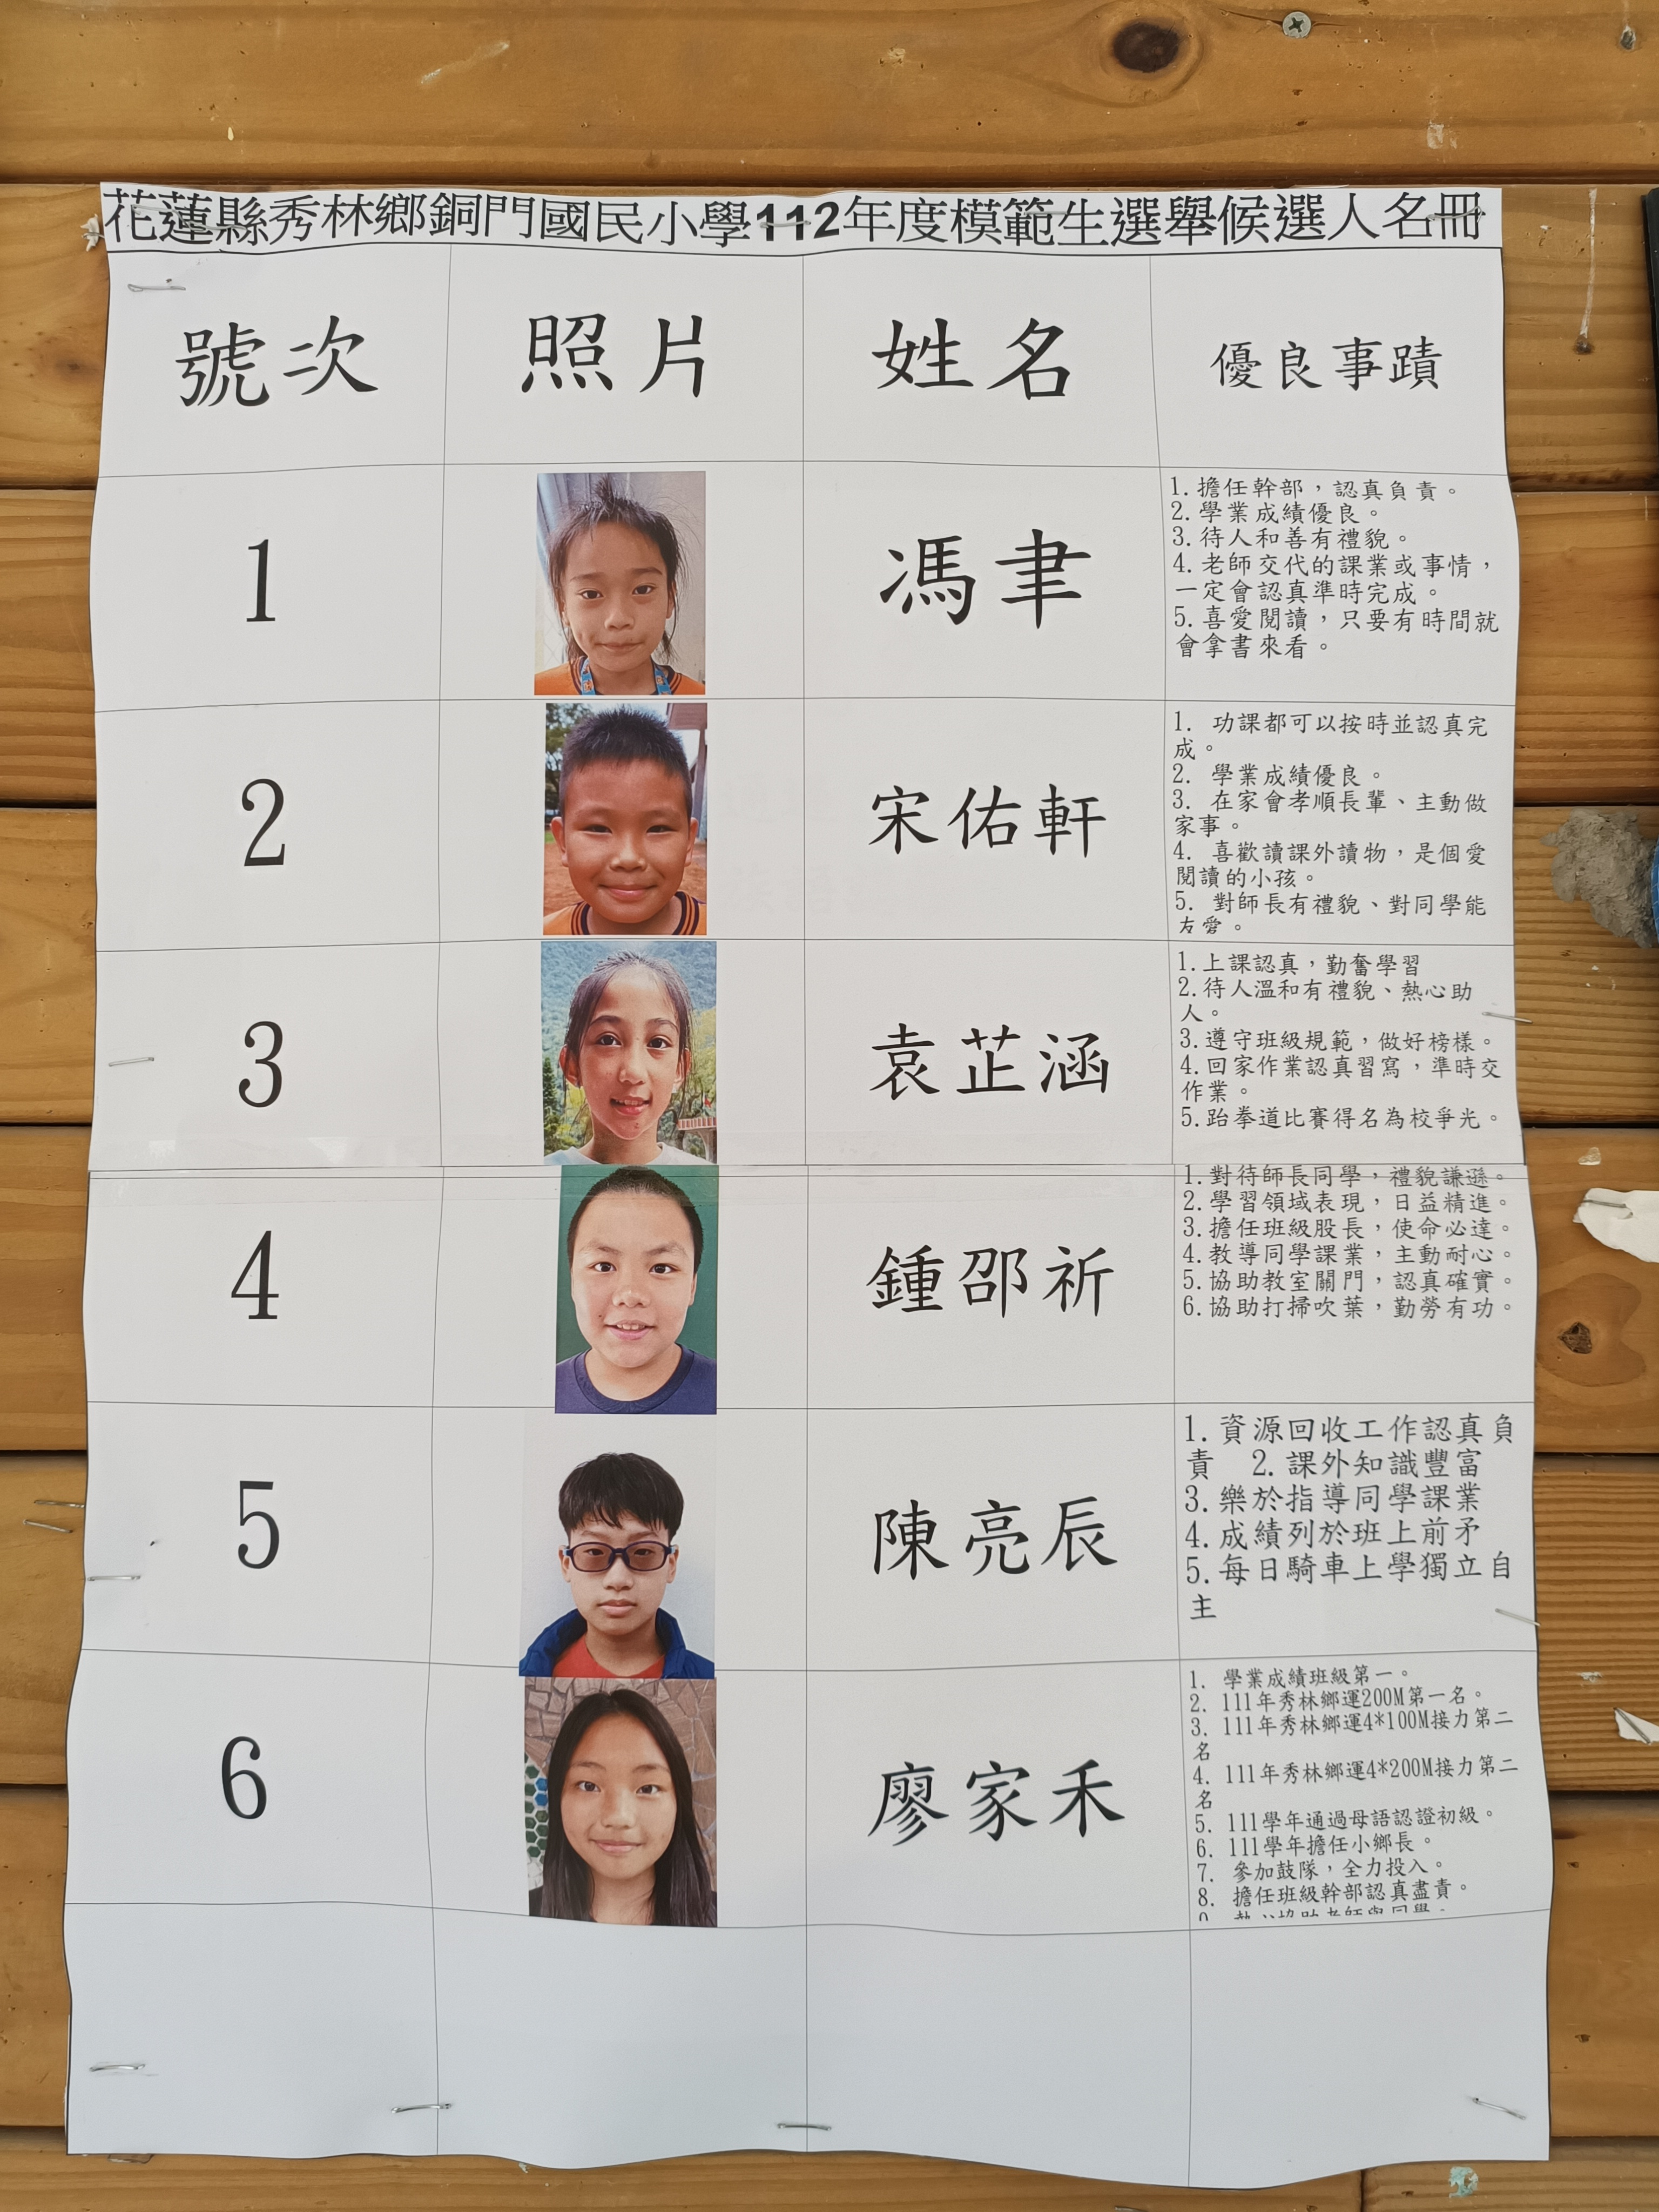 花蓮縣秀林鄉銅門國民小學112年度模範生選舉候選人名冊
號次 照片 姓名 優良事蹟
1
馮聿
1.擔任幹部，認真負責。
2.學業成績優良。
3.待人和善有禮貌。
4.老師交代的課業或事情，
一定會認真準時完成。
5.喜愛閱讀，只要有時間就
會拿書來看。
2
宋佑軒
1. 功課都可以按時並認真完
成。
2. 學業成績優良。
3. 在家會孝順長輩、主動做
家事。
4. 喜歡讀課外讀物，是個愛
閱讀的小孩。
5. 對師長有禮貌、對同學能
友愛。
3
袁芷涵
1.上課認真，勤奮學習
2.待人溫和有禮貌、熱心助
人。
3.遵守班級規範，做好榜樣。
4.回家作業認真習寫，準時交
作業。
5.跆拳道比賽得名為校爭光。
4
鍾邵祈
1.對待師長同學，禮貌謙遜。
2.學習領域表現，日益精進。
3.擔任班級股長，使命必達。
4.教導同學課業，主動耐心。
5.協助教室關門，認真確實。
6.協助打掃吹葉，勤勞有功。
5
陳亮辰
1.資源回收工作認真負
責 2.課外知識豐富
3.樂於指導同學課業
4.成績列於班上前矛
5.每日騎車上學獨立自
主
6
廖家禾
1. 學業成績班級第一。
2. 111年秀林鄉運200M第一名。
3. 111年秀林鄉運4*100M接力第二
名
4. 111年秀林鄉運4*200M接力第二
名
5. 111學年通過母語認證初級。
6. 111學年擔任小鄉長。
7. 參加鼓隊，全力投入。
8. 擔任班級幹部認真盡責。